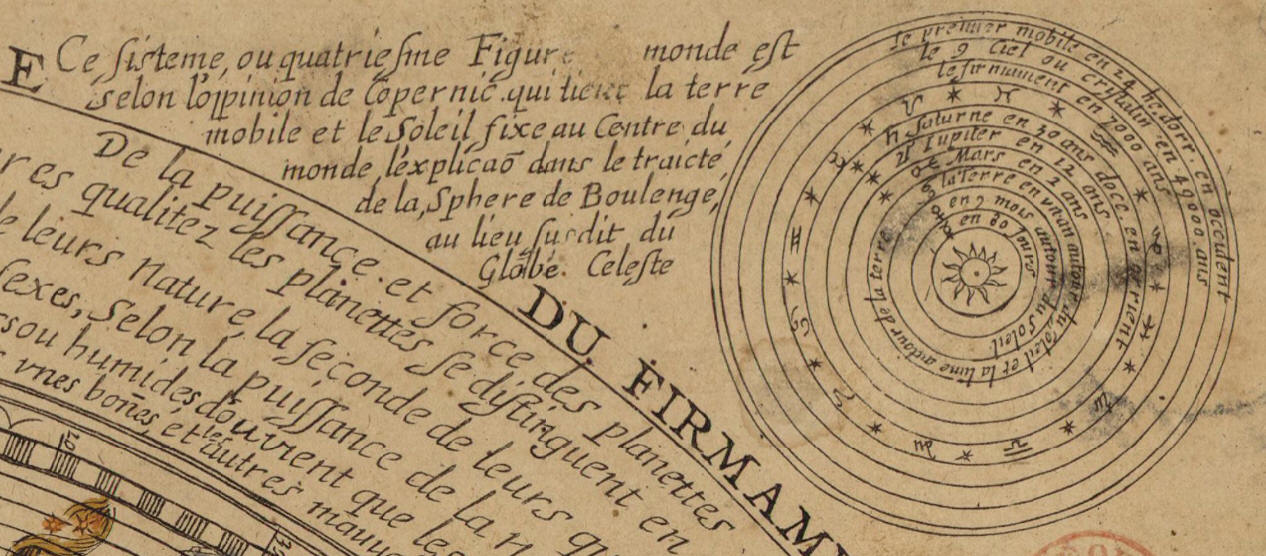 E
Ce sisteme, ou quatriesme Figure monde est
selon l'oppinion de Copernic qui tient la terre
mobile et le Soleil fixe au Centre du
monde lexplicaõ dans le traicté
de la Sphere de Boulenge,
au lieu susdit du
Globe Celeste
DU FIRMAM
De la puissance et force des planettes
res qualitez les planettes se distinguent en
leurs nature, la seconde de leurs qu
sexes, selon la puissance de la n
sou humides, douvient que les
vnes boñes, et les autres mauu
le premier mobile en 24 he dorr. en occident
le 9 Ciel ou cristalin en 49000 ans
le firmament en 7000 ans
♈ ♓ ♒ ♑ ♐ ♏ ♎ ♍ ♌ ♋ ♊ ♉
♄ Saturne en 30 ans docc. en orient
♃ Iupiter en 12 ans
♂ Mars en 2 ans
la Terre en vn an autour du Soleil et la lune autour de la terre
♀ en 9 mois autour du Soleil
☿ en 80 jours